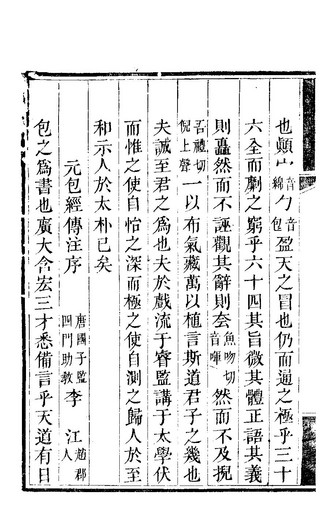 也顛宀音綿勹音包盈天之冒也仍而逼之極乎三十
六全而劘之窮乎六十四其旨微其體正語其義
則矗然而不誣觀其辭則𡘙魚吻切音㖧然而不及掜
吾禮切倪上聲一以布氣藏萬以植言斯道君子之幾也
夫誠至君之爲也夫於戲流于睿監講于太學伏
而惟之使自怡之深而極之使自測之歸人於至
和示人於太朴已矣
元包經傳注序唐國子監四門助敎李江趙郡人
包之爲書也廣大含宏三才悉備言乎天道有日